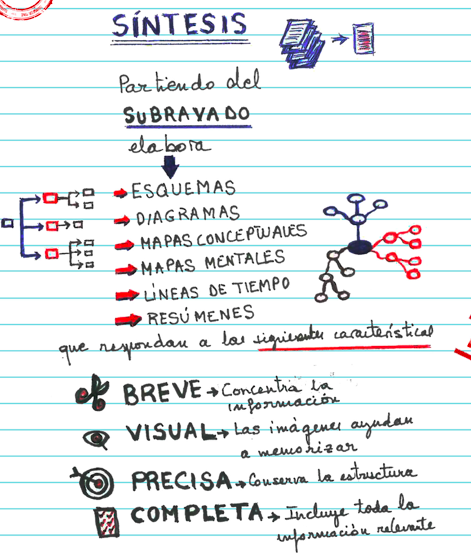 SÍNTESIS
Partiendo del
SUBRAYADO
elabora
ESQUEMAS
DIAGRAMAS
MAPAS CONCEPTUALES
MAPAS MENTALES
LÍNEAS DE TIEMPO
RESÚMENES
que respondan a las siguientes características
BREVE → Concentra la
información
VISUAL → Las imágenes ayudan
a memorizar
PRECISA → Conserva la estructura
COMPLETA → Incluye toda la
información relevante